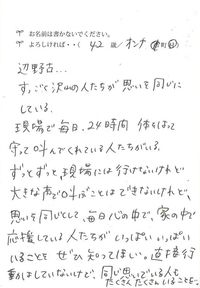 お名前は書かないでください。
よろしければ・・( 42 歳/オンナ 町田)
辺野古…
すっごく沢山の人たちが思いを同じに
している。
現場で毎日、24時間 体をはって
守って叫んでくれている人たちがいる。
ずっとずっと現場には行けないけれど
大きな声で叫ぶことはできないけれど、
思いを同じとして、毎日心の中で、家の中で
応援している人たちが いっぱい いっぱい
いることを ぜひ知ってほしい。直接行
動はしていないけど、同じ思いでいる人も
たくさんたくさんいることを。